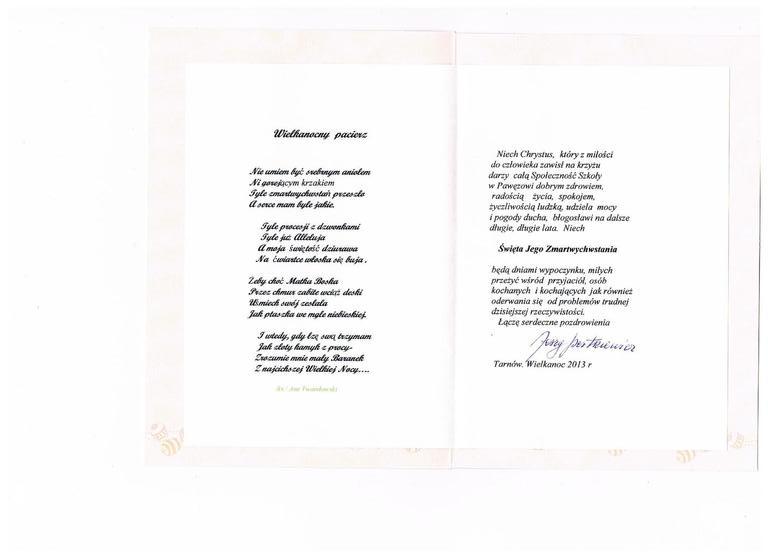 Wielkanocny pacierz
Nie umiem być srebrnym aniołem
Ni gorejącym krzakiem
Tyle zmartwychwstań przeszło
A serce mam byle jakie.
Tyle procesji z dzwonkami
Tyle już Alleluja
A moja świętość dziurawa
Na ćwiartce włoska się buja.
Żeby choć Matka Boska
Przez chmur zabite wciąż deski
Uśmiech swój zesłała
Jak ptaszka we mgle niebieskiej.
I wtedy, gdy łzę swą trzymam
Jak złoty kamyk z procy-
Zrozumie mnie mały Baranek
Z najcichszej Wielkiej Nocy....
Ks. Jan Twardowski
Niech Chrystus, który z miłości
do człowieka zawisł na krzyżu
darzy całą Społeczność Szkoły
w Pawęzowi dobrym zdrowiem,
radością życia, spokojem,
życzliwością ludzką, udziela mocy
i pogody ducha, błogosławi na dalsze
długie, długie lata. Niech
Święta Jego Zmartwychwstania
będą dniami wypoczynku, miłych
przeżyć wśród przyjaciół, osób
kochanych i kochających jak również
oderwania się od problemów trudnej
dzisiejszej rzeczywistości.
Łączę serdeczne pozdrowienia
Tarnów, Wielkanoc 2013 r